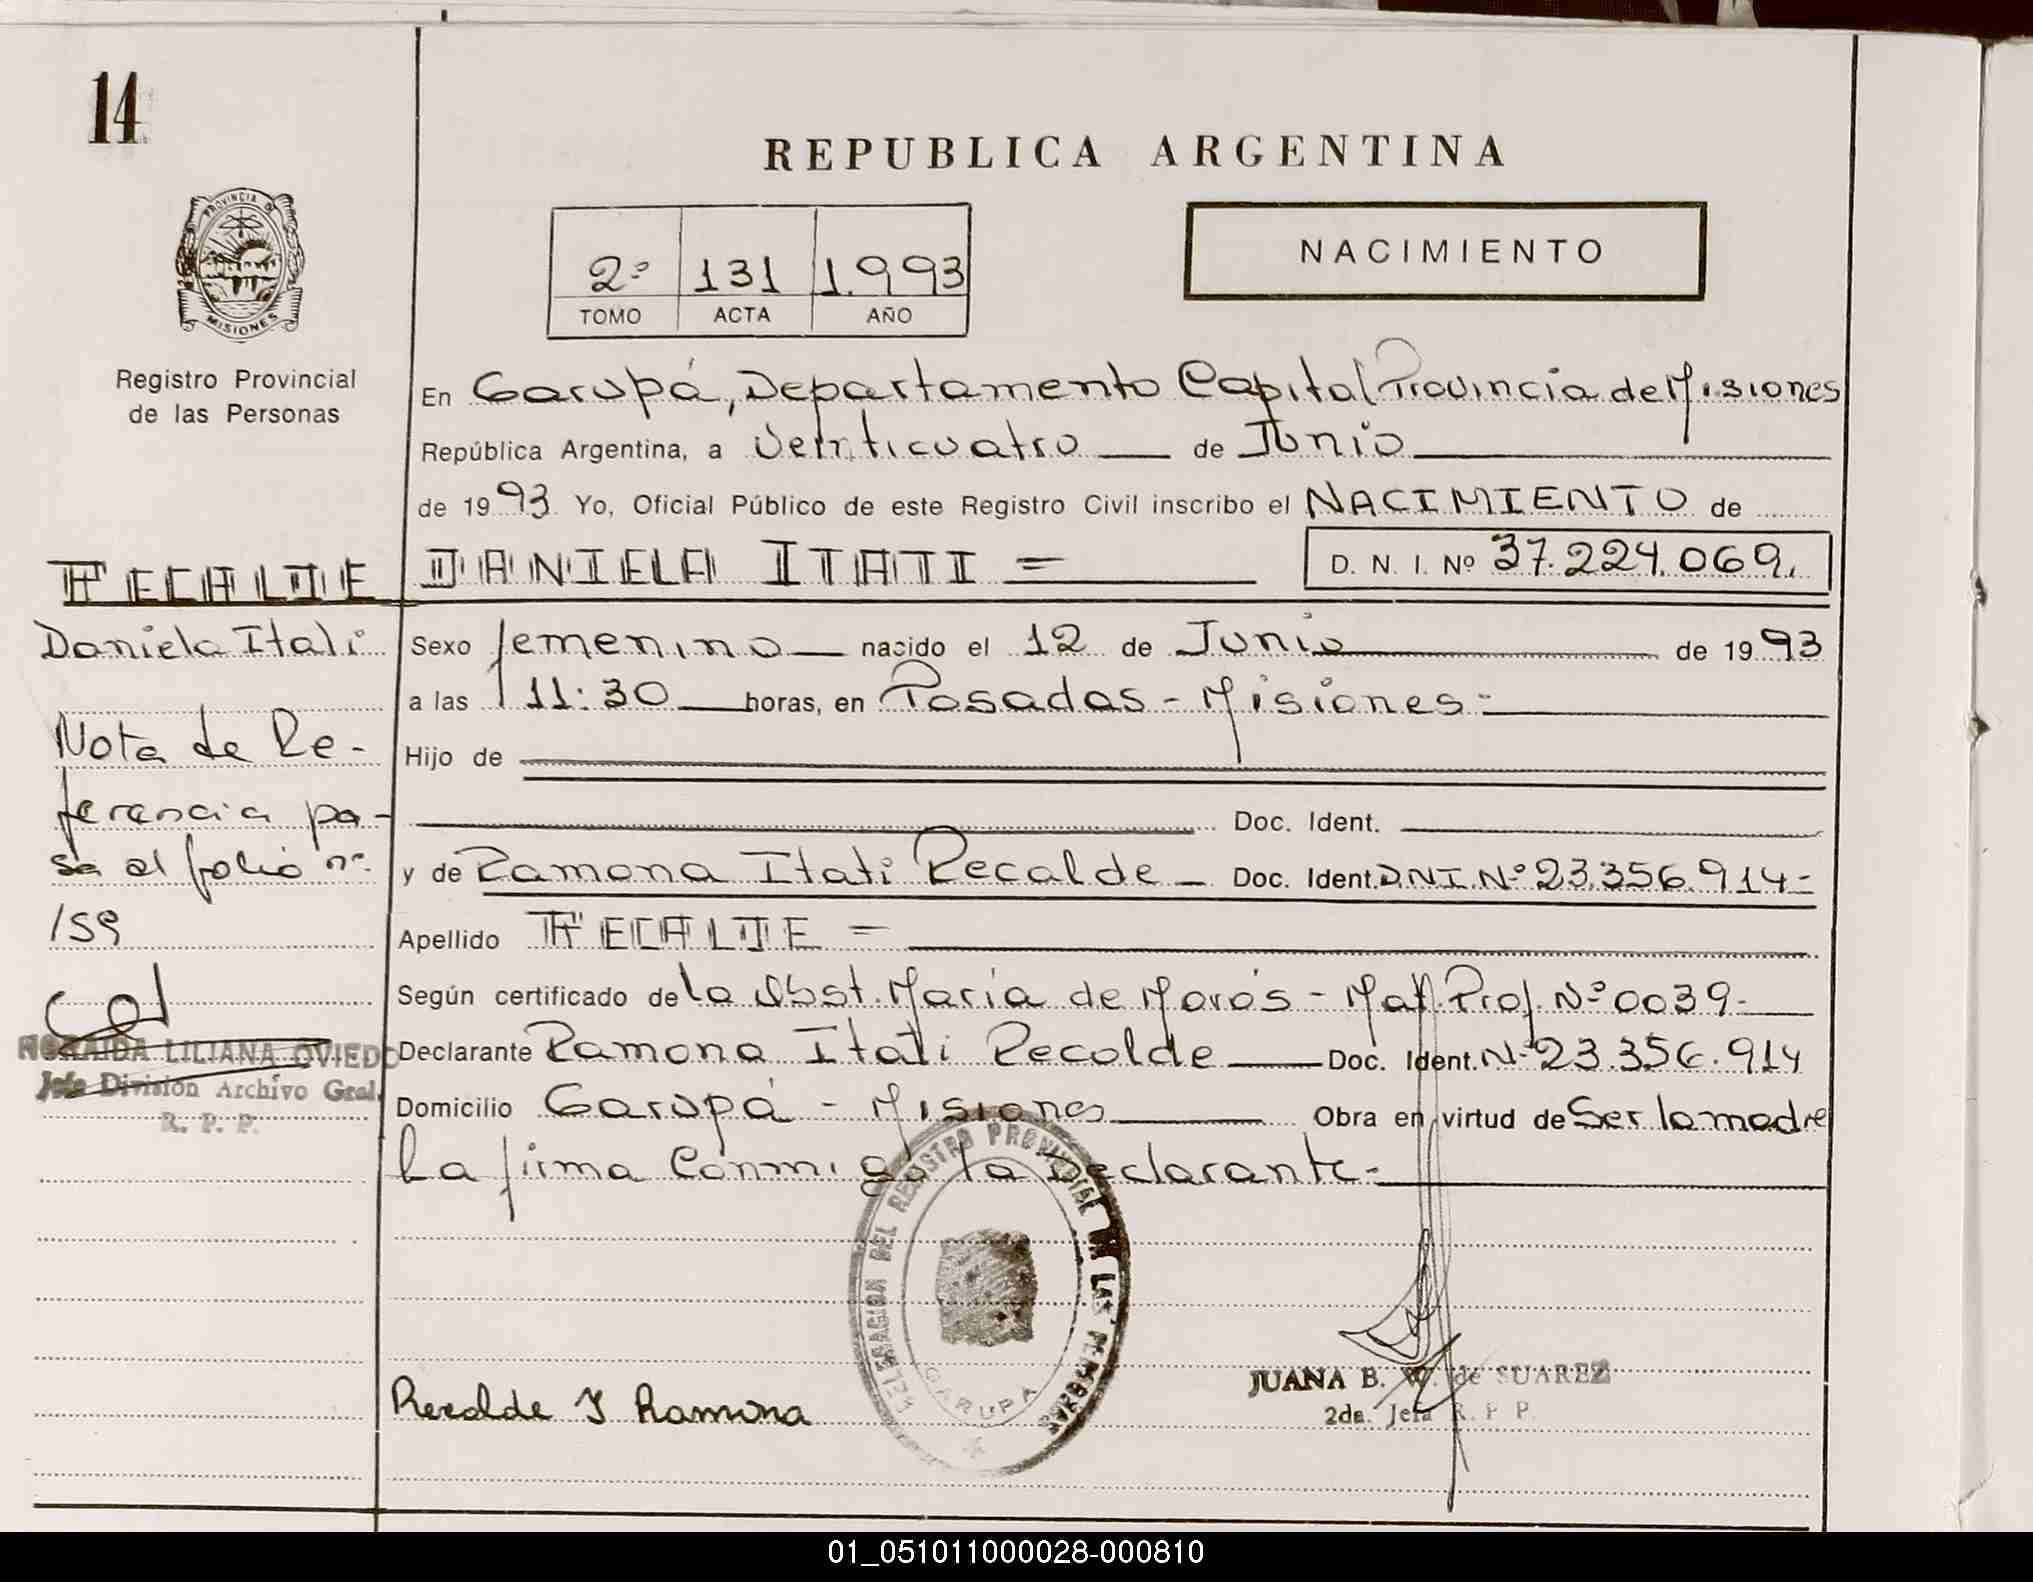 14
REPUBLICA ARGENTINA
PROVINCIA DE
MISIONES
Registro Provincial
de las Personas
2º 131 1.993
TOMO ACTA AÑO
NACIMIENTO
En Garupá, Departamento Capital Provincia de Misiones
República Argentina, a Veinticuatro de Junio
de 1993 Yo, Oficial Público de este Registro Civil inscribo el NACIMIENTO de
DANIELA ITATI = D. N. I. Nº 37.224.069.
Sexo femenino nacido el 12 de Junio de 1993
a las 11:30 horas, en Posadas - Misiones -
Hijo de
Doc. Ident.
y de Ramona Itati Recalde - Doc. Ident. DNI. Nº 23.356.914-
Apellido RECALDE =
Según certificado de la Obst. María de Morós - Mat. Prof. Nº 0039-
Declarante Ramona Itati Recalde Doc. Ident. Nº 23.356.914
Domicilio Garupá - Misiones Obra en virtud de Ser la madre
La firma Conmigo la Declarante -
RECALDE
Daniela Itati
Nota de Re-
ferencia pa-
sa al folio nº
159
LILIANA OVIEDO
Jefe División Archivo Gral.
R. P. P.
DELEGACION DEL REGISTRO PROVINCIAL DE LAS PERSONAS
GARUPA
Recalde I Ramona
JUANA B. W. de SUAREZ
2da. Jefa R. P. P.
01_051011000028-000810